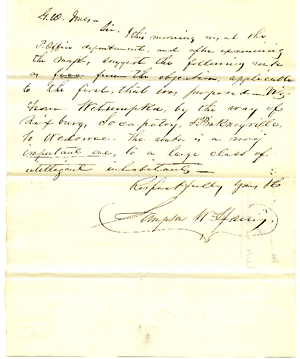 Sir. I this morning was at the
P. Office department and after examining
the maps, suggest the following route
as free from the objection, applicable
to the first, that was proposed — Viz
From Wetumpka, by the way of
Socapatoy,
to Wedowee. The route is a very
important one, to a large class of
intelligent inhabitants —
Respectfully Yours &c
Sampson W Harris